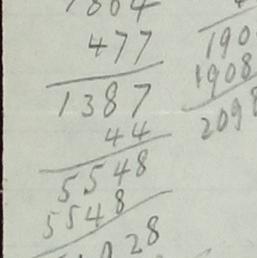 477
1387
44
5548
5548
190
1908
2098